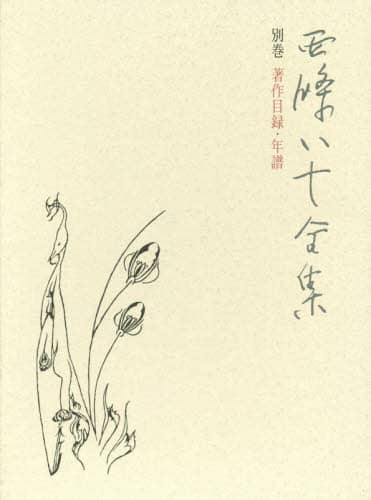 西條八十全集
別巻 著作目録・年譜